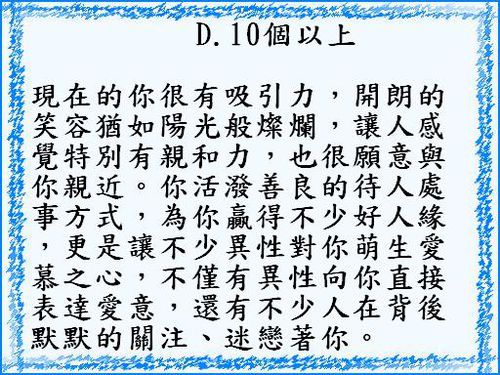 D.10個以上
現在的你很有吸引力，開朗的
笑容猶如陽光般燦爛，讓人感
覺特別有親和力，也很願意與
你親近。你活潑善良的待人處
事方式，為你贏得不少好人緣
，更是讓不少異性對你萌生愛
慕之心，不僅有異性向你直接
表達愛意，還有不少人在背後
默默的關注、迷戀著你。